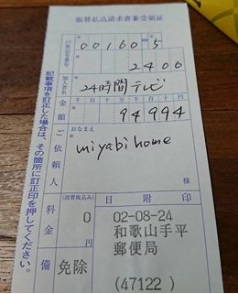 振替払込請求書兼受領証
00160 5
2400
加入者名
24時間テレビ
金額
千百十万千百十円
94994
ご依頼人
おなまえ
miyabi home
様
料金
(消費税込み)
0
円
備
免除
日附印
02-08-24
和歌山手平
郵便局
(47122)
記載事項を訂正した場合は、その箇所に訂正印を押してください。